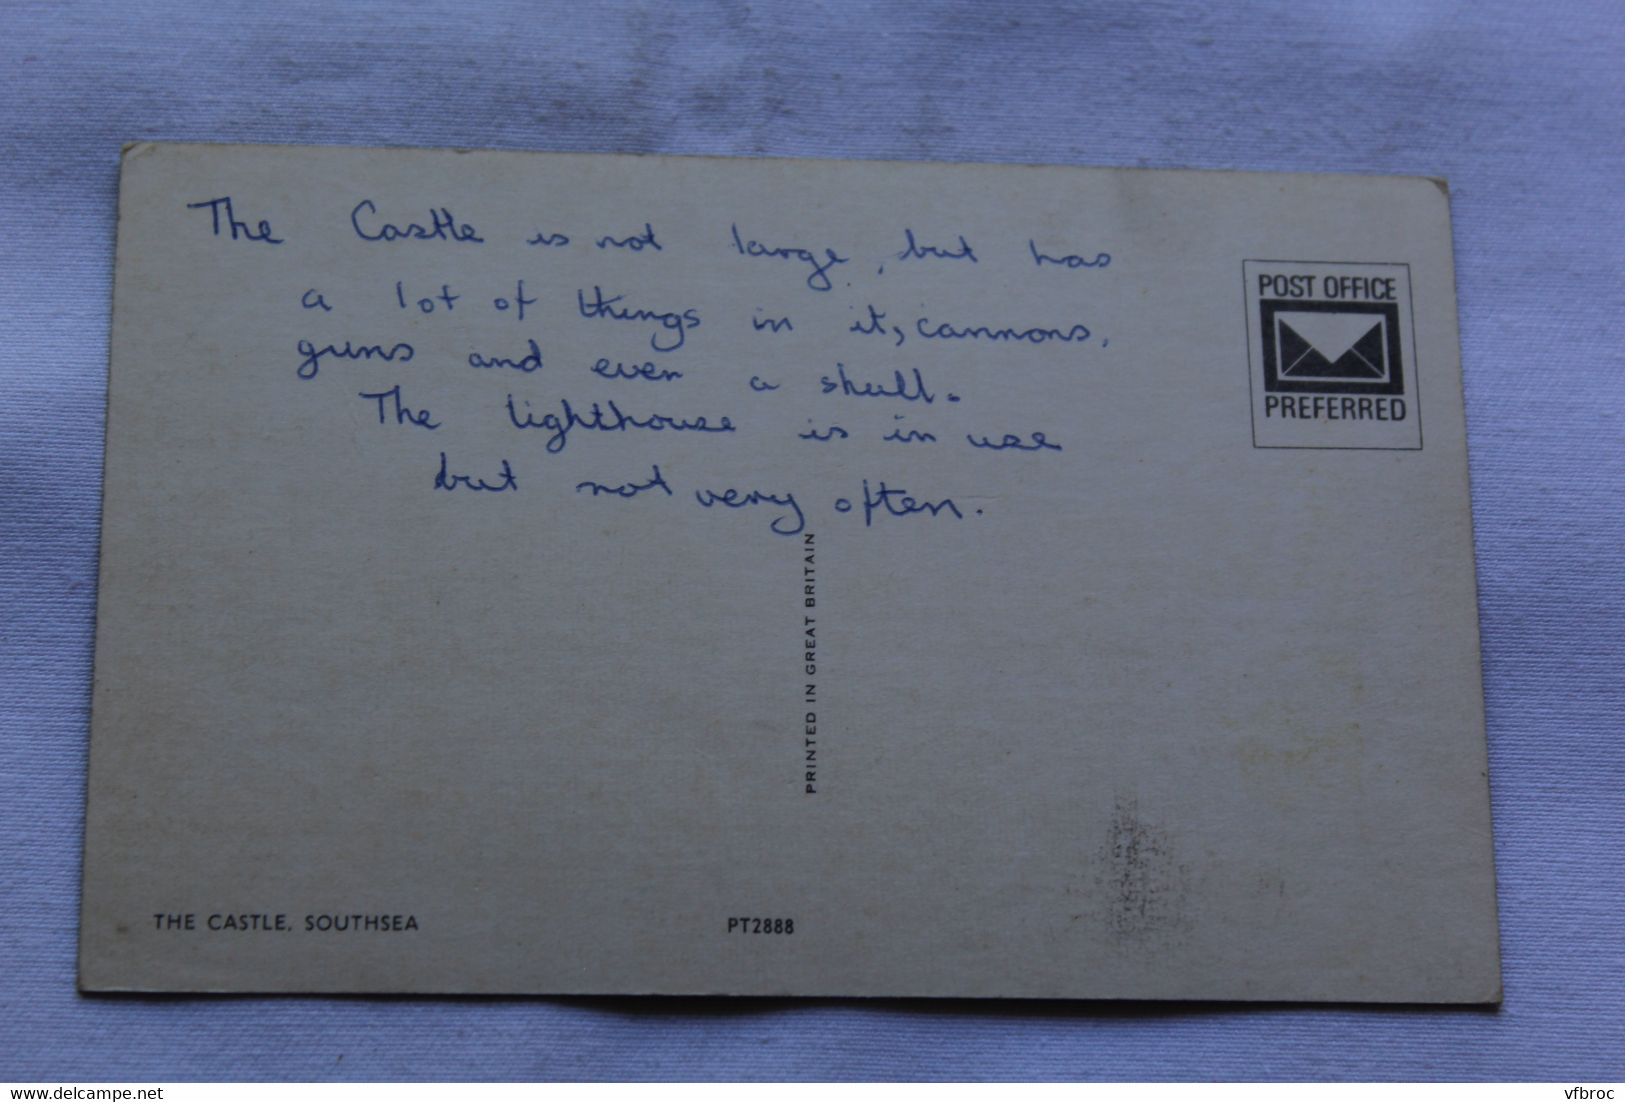 The Castle is not large, but has
a lot of things in it, cannons,
guns and even a skull.
The lighthouse is in use
but not very often.
POST OFFICE
PREFERRED
PRINTED IN GREAT BRITAIN
THE CASTLE, SOUTHSEA
PT2888
www.delcampe.net
vfbroc